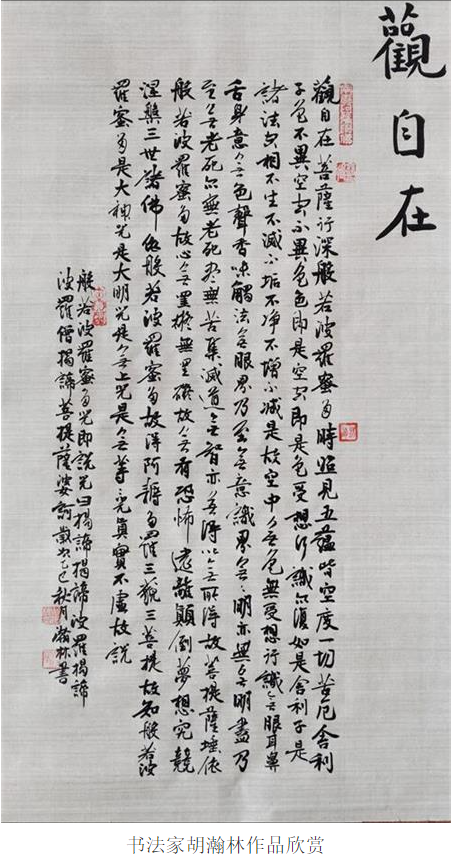 觀自在
觀自在菩薩行深般若波羅蜜多時照見五蘊皆空度一切苦厄舍利
子色不異空空不異色色即是空空即是色受想行識亦復如是舍利子是
諸法空相不生不滅不垢不净不增不減是故空中無色無受想行識無眼耳鼻
舌身意無色聲香味觸法無眼界乃至無意識界無無明亦無無明盡乃
至無老死亦無老死盡無苦集滅道無智亦無得以無所得故菩提薩埵依
般若波羅蜜多故心無罣礙無罣礙故無有恐怖遠離顛倒夢想究竟
涅槃三世諸佛依般若波羅蜜多故得阿耨多羅三藐三菩提故知般若波
羅蜜多是大神咒是大明咒是無上咒是無等咒真實不虛故說
般若波羅蜜多咒即說咒曰揭諦揭諦波羅揭諦
波羅僧揭諦菩提薩婆訶歲次乙巳秋月瀚林書
书法家胡瀚林作品欣赏